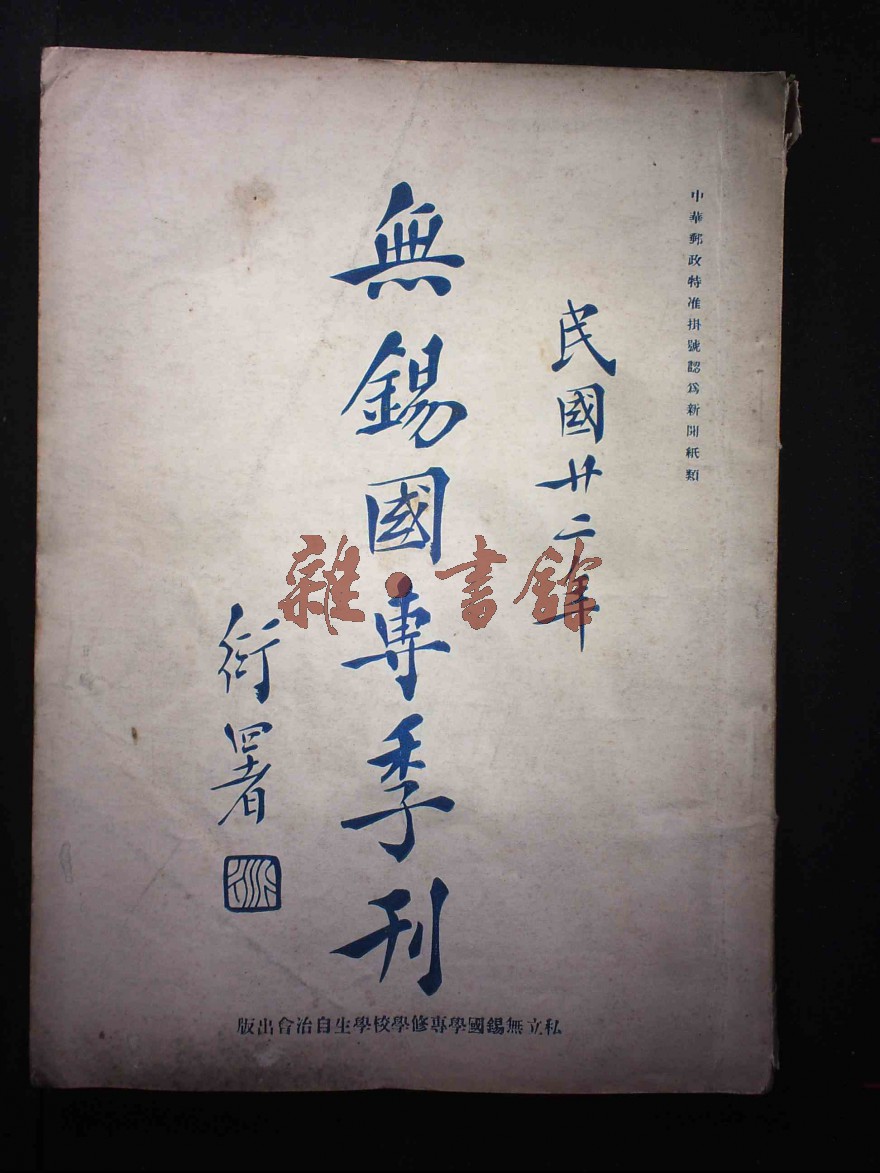 中華郵政特准掛號認爲新聞紙類
民國廿二年
無錫國專季刊
衍署
衍
私立無錫國學專修學校學生自治會出版
雜·書館